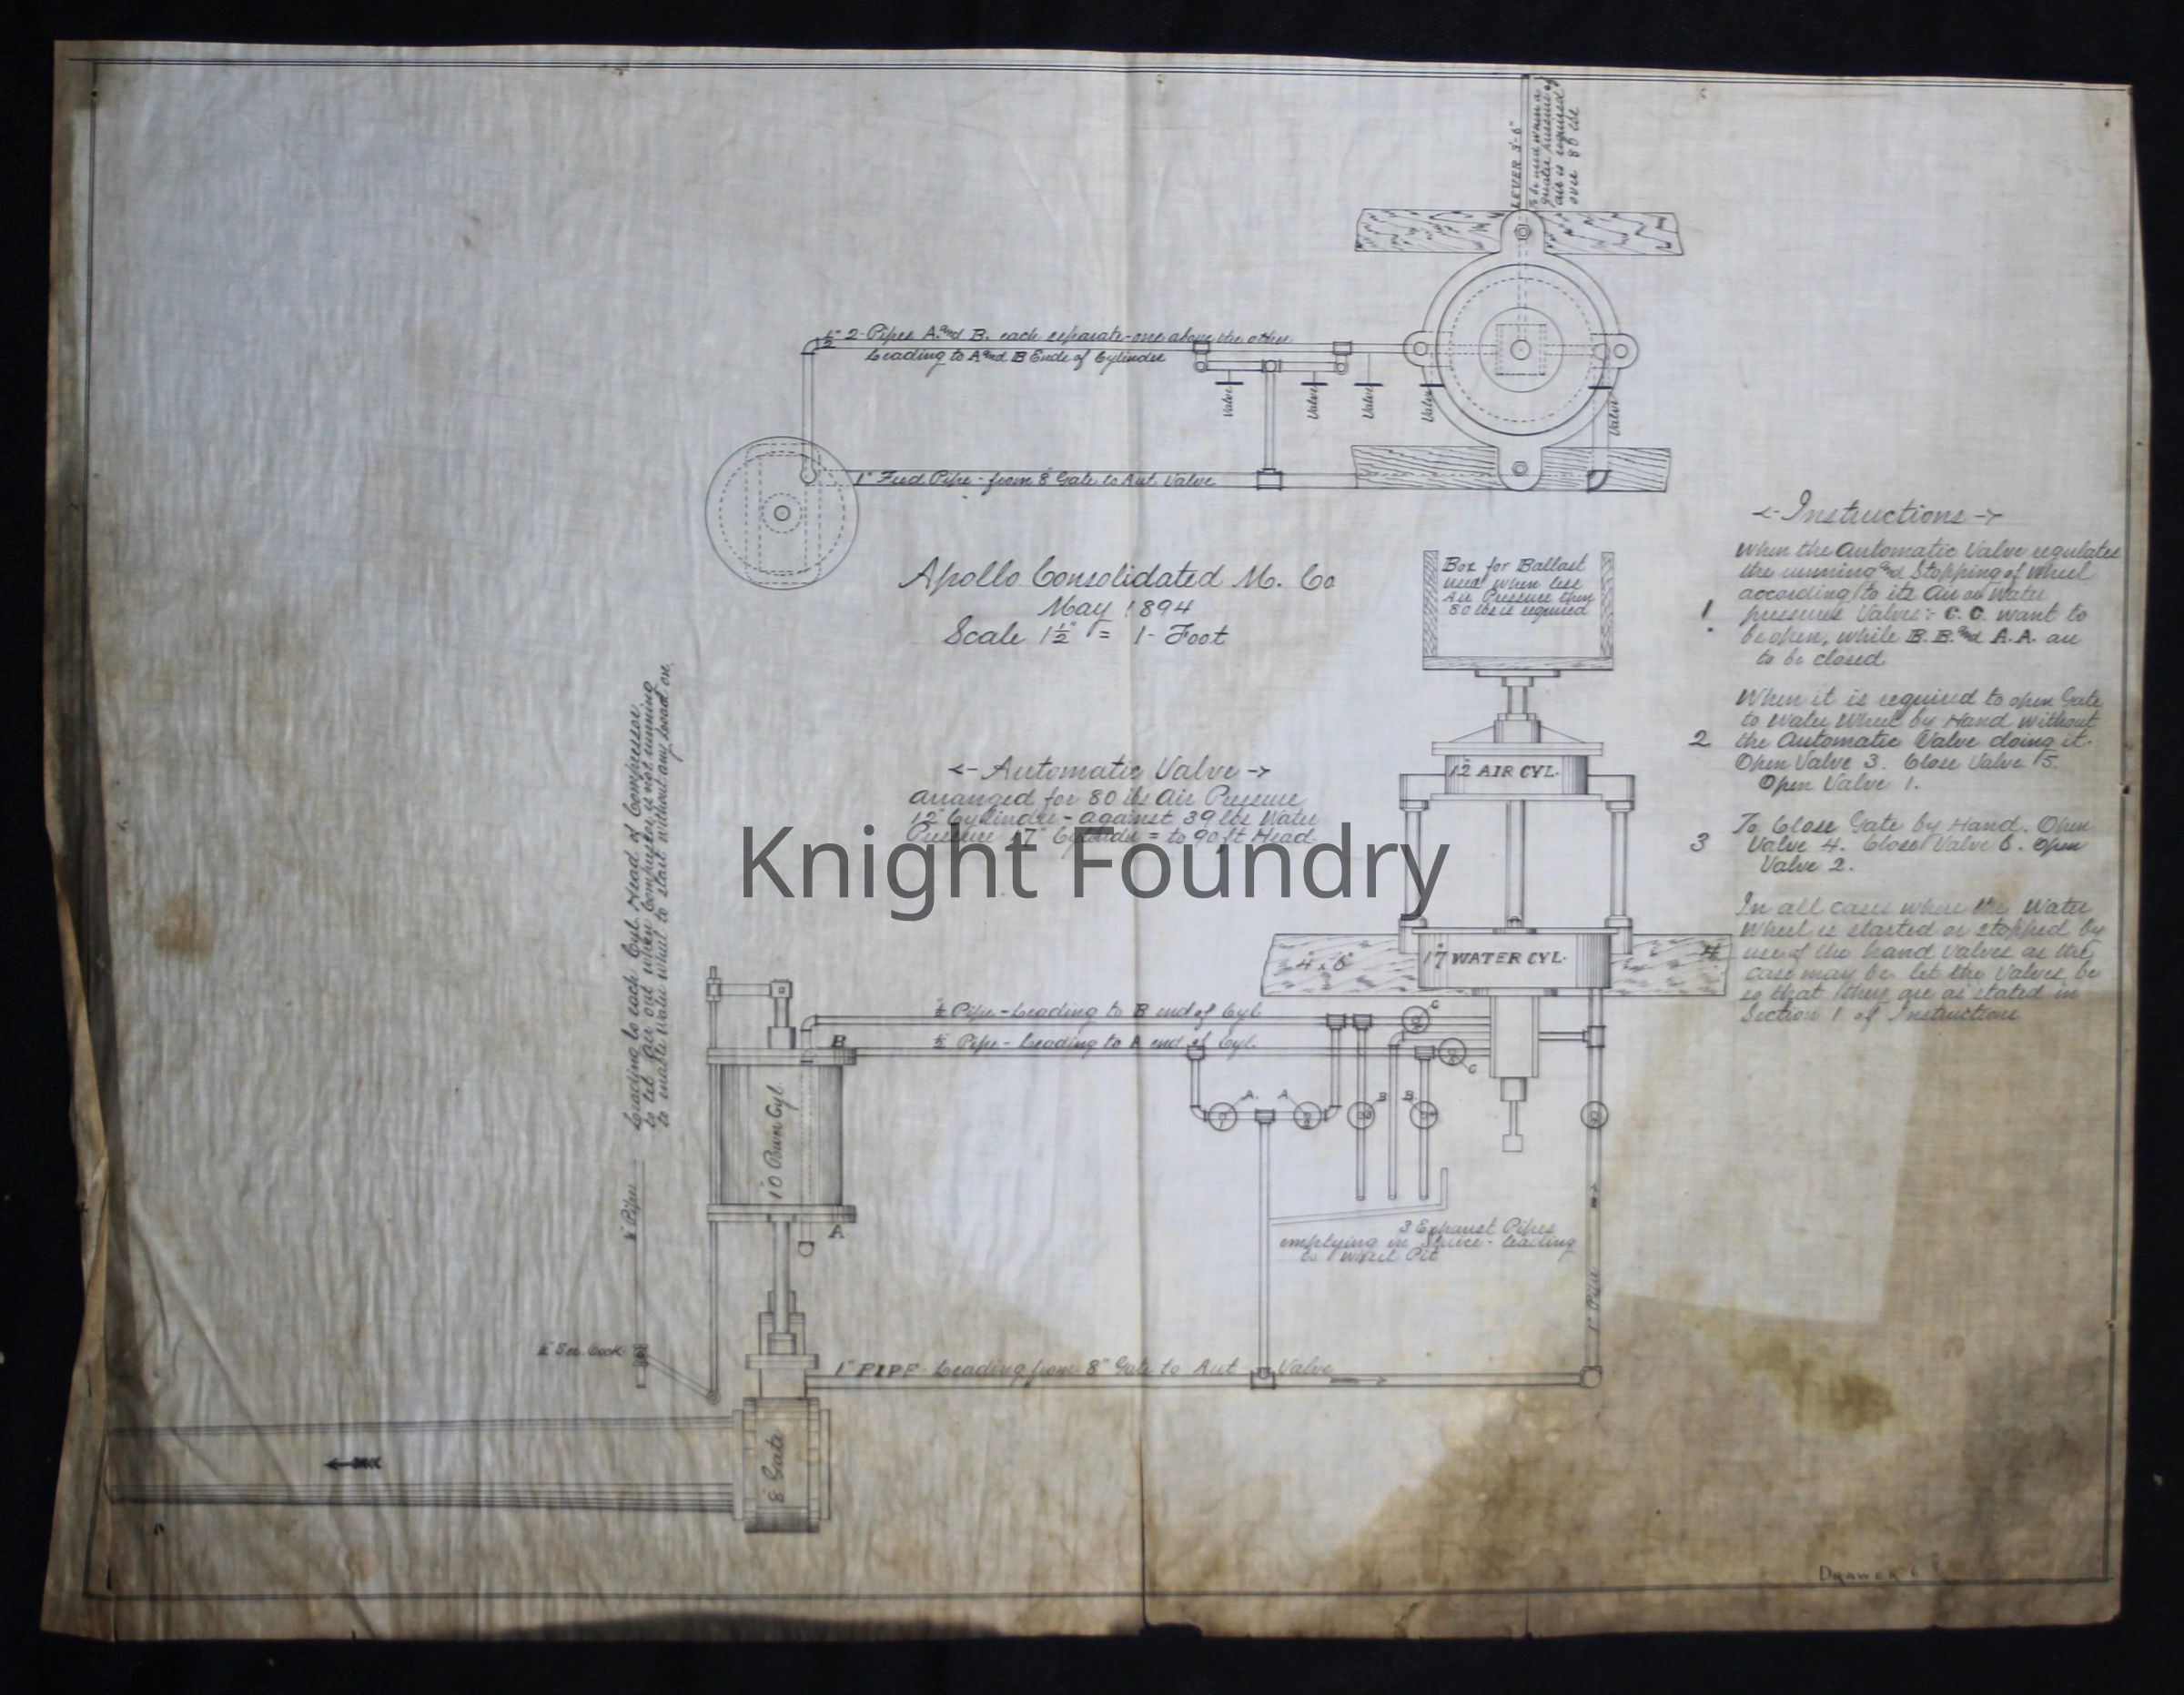 LEVER 3'-6"
To be used when a
greater pressure of
air is required
over 80 lbs
1/2" 2-Pipes A and B. each separate-one above the other
Leading to A and B Ends of Cylinder
Valve
Valve
Valve
Valve
Valve
1" Feed Pipe - from 8" Gate to Aut. Valve
Apollo Consolidated M. Co
May 1894
Scale 1½" = 1-Foot
Box for Ballast
used when less
Air Pressure then
80 lbs is required
<- Instructions ->
When the Automatic Valve regulates
the running and Stopping of Wheel
according to its Air or Water
1 pressures Valves :- C.C. want to
be open, while B.B. and A.A. are
to be closed
When it is required to open Gate
to Water Wheel by Hand without
2 the Automatic Valve doing it.
Open Valve 3. Close Valve 5.
Open Valve 1.
To Close Gate by Hand. Open
3 Valve 4. Close Valve 6. Open
Valve 2.
In all cases where the Water
Wheel is started or stopped by
4 use of the hand valves as the
case may be let the Valves be
so that they are as stated in
Section 1 of Instructions
<- Automatic Valve ->
arranged for 80 lbs Air Pressure
12" Cylinder - against 39 lbs Water
Pressure 17" Cylinder = to 90 ft Head.
Knight Foundry
12" AIR CYL.
17" WATER CYL.
4 x 6
Leading to each Cyl. Head of Compressor.
to let air out when Compressor is not running
to enable Water Wheel to start without any Load on.
Pipe
½ Pipe - Leading to B end of Cyl
½ Pipe - Leading to A end of Cyl.
B
10" Power Cyl.
A
C
C
A. A
B B.
3 Exhaust Pipes
emptying in Sluice - leading
to Wheel Pit
1" Pipe
Cock
1" PIPE - Leading from 8" Gate to Aut Valve
8" Gate
DRAWER 6